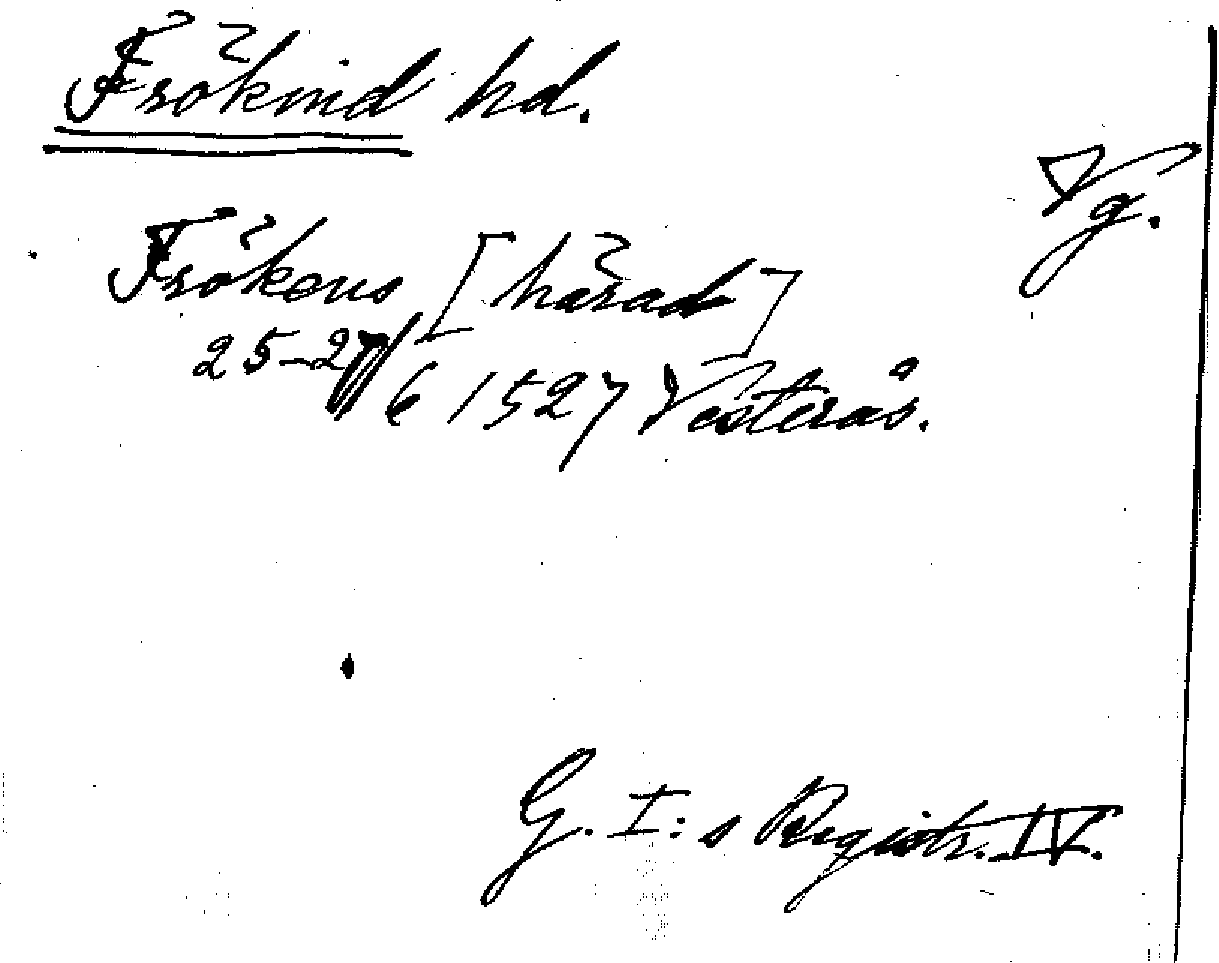 Frökind hd.
Vg.
Frökens [härad]
25-27/6 1527 Västerås.
G. I:s Registr. IV.